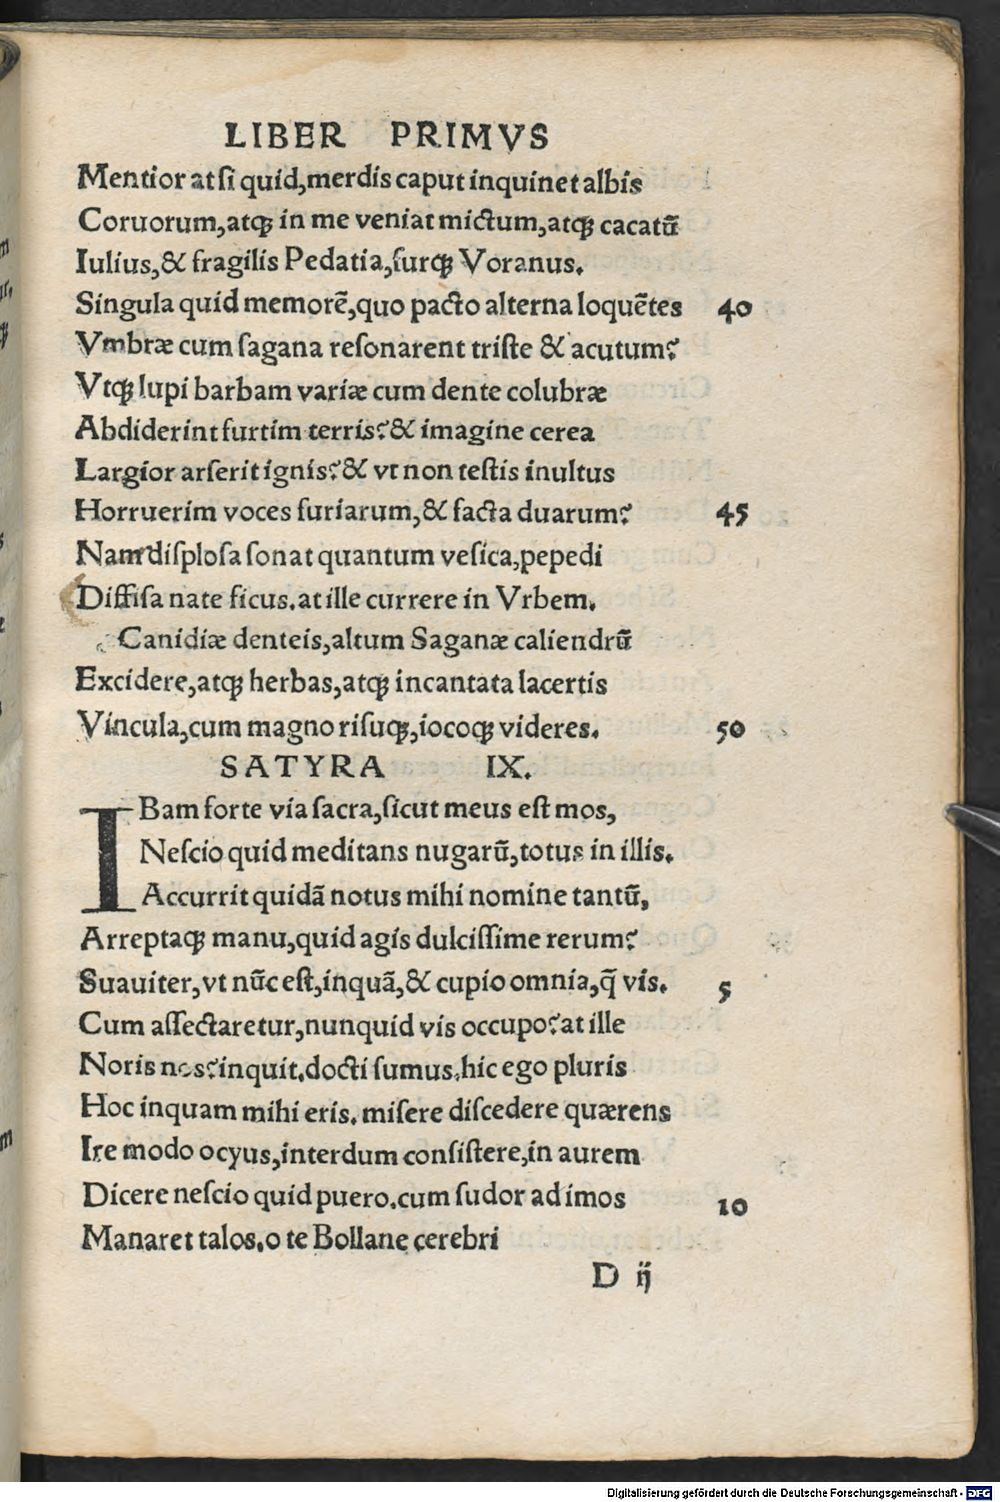 LIBER PRIMVS
Mentior at ſi quid, merdis caput inquinet albis
Coruorum, atq; in me veniat mictum, atq; cacatū
Iulius, & fragilis Pedatia, furq; Voranus.
Singula quid memorē, quo pacto alterna loquētes 40
Vmbræ cum ſagana reſonarent triſte & acutum?
Vtq; lupi barbam variæ cum dente colubræ
Abdiderint furtim terris? & imagine cerea
Largior arſerit ignis? & vt non teſtis inultus
Horruerim voces furiarum, & facta duarum? 45
Nam diſploſa ſonat quantum veſica, pepedi
Diffiſa nate ficus. at ille currere in Vrbem.
Canidiæ denteis, altum Saganæ caliendrū
Excidere, atq; herbas, atq; incantata lacertis
Vincula, cum magno riſuq;, iocoq; videres. 50
SATYRA IX.
IBam forte via ſacra, ſicut meus eſt mos,
Neſcio quid meditans nugarū, totus in illis.
Accurrit quidā notus mihi nomine tantū,
Arreptaq; manu, quid agis dulciſſime rerum?
Suauiter, vt nūc eſt, inquā, & cupio omnia, q̄ vis. 5
Cum aſſectaretur, nunquid vis occupo? at ille
Noris nos? inquit. docti ſumus. hic ego pluris
Hoc inquam mihi eris. miſere diſcedere quærens
Ire modo ocyus, interdum conſiſtere, in aurem
Dicere neſcio quid puero. cum ſudor ad imos 10
Manaret talos. o te Bollane cerebri
D ij
Digitalisierung gefördert durch die Deutsche Forschungsgemeinschaft - DFG